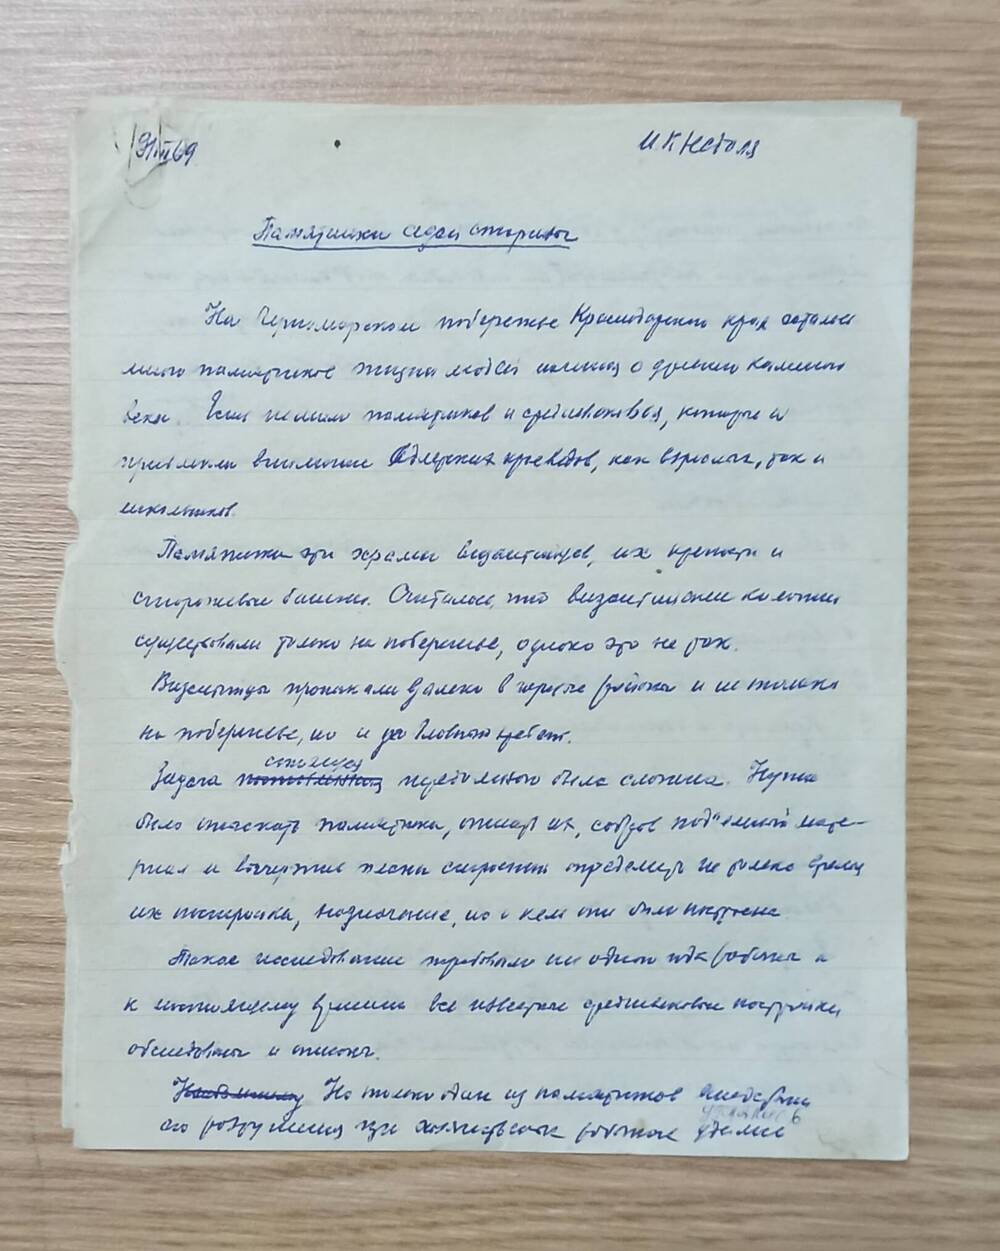 И К Нестоля
Памятники седой старины
На Черноморском побережье Краснодарского края осталось
много памятников жизни людей начиная с древнего каменного
века. Есть немало памятников и средневековья, которые и
привлекли внимание Адлерских краеведов, как взрослых, так и
школьников.
Памятники эти храмы византийцев, их крепости и
сторожевые башни. Считалось, что византийские колонии
существовали только на побережье, однако это не так.
Византийцы проникали далеко в горные районы и не только
на побережье, но и за Главный хребет.
стоящая
Задача перед много была сложна. Нужно
было отыскать памятники, описать их, собрав подъемный мате-
риал и вычертив планы строений определить не только время
их постройки, назначение, но и кем они были построены.
Такое исследование требовало не одного года работы и
к настоящему времени все известные средневековые постройки
обследованы и описаны.
Но только один из памятников
его разрушения при хозяйственных работах удалось